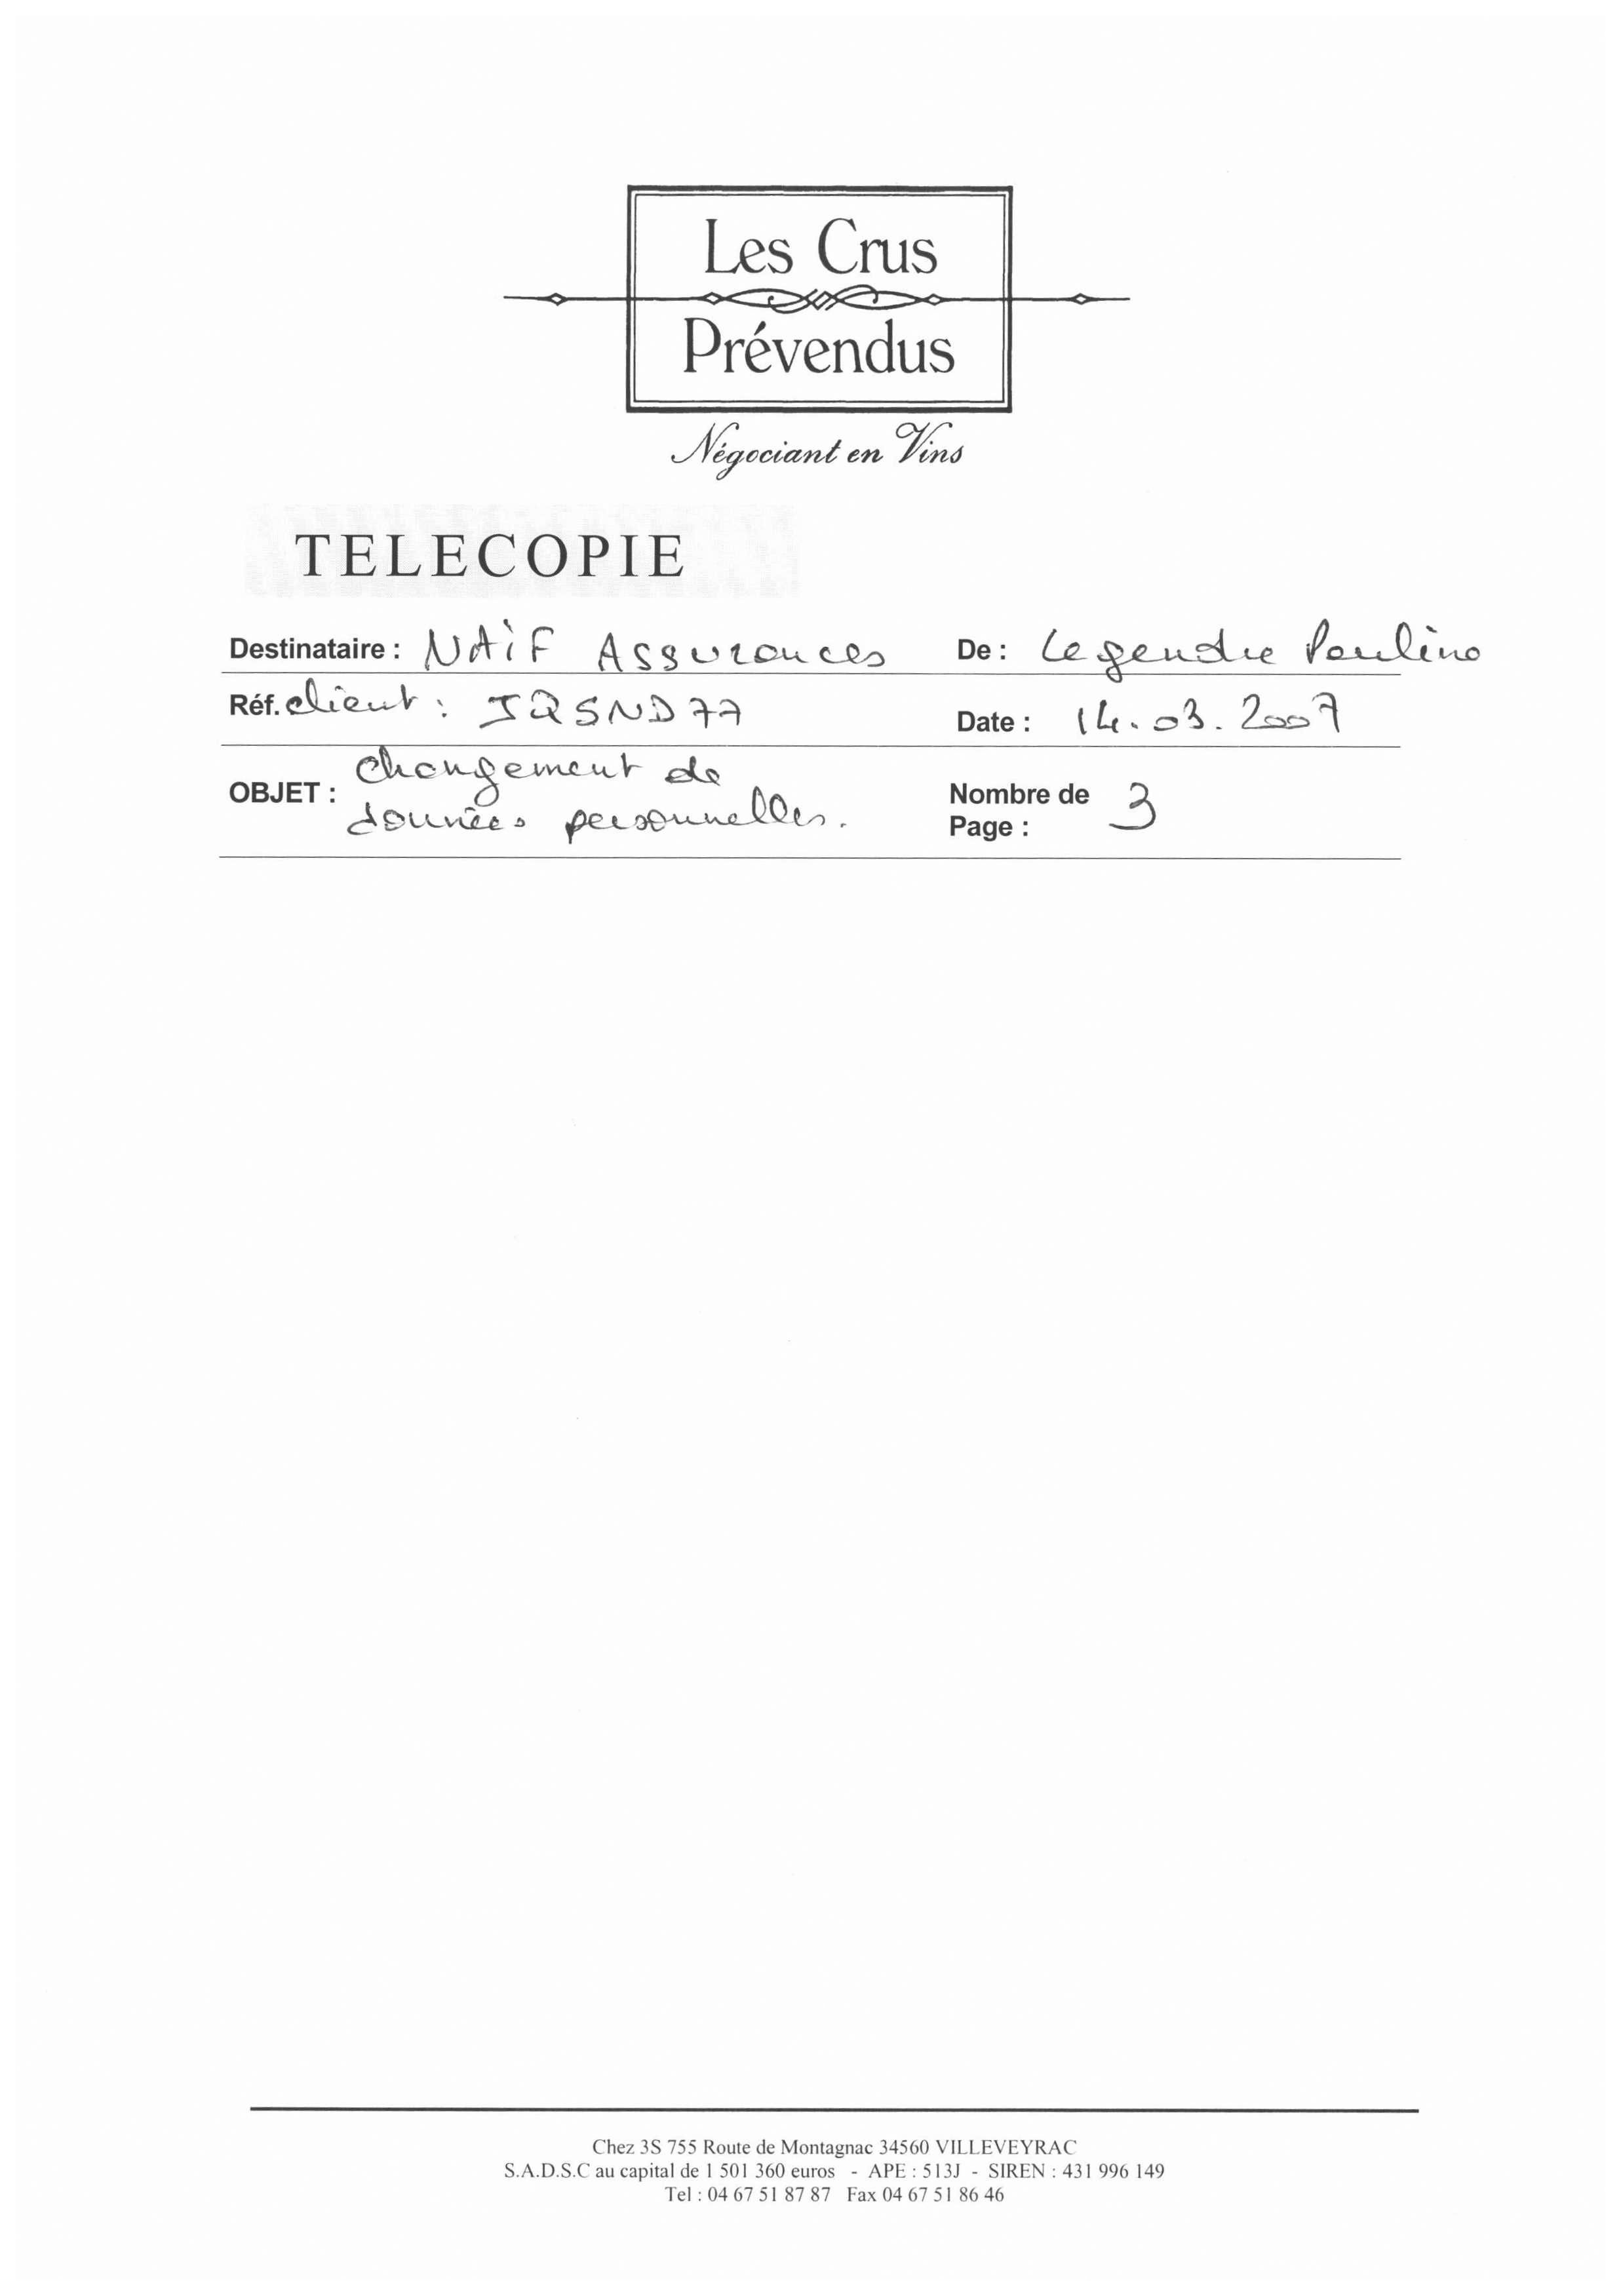 Les Crus
Prévendus
Négociant en Vins
TELECOPIE
Destinataire : NAiF Assurances De : Legendre Pauline
Réf. client : JQSND77 Date : 14.03.2007
OBJET : changement de
données personnelles. Nombre de Page : 3
Chez 3S 755 Route de Montagnac 34560 VILLEVEYRAC
S.A.D.S.C au capital de 1 501 360 euros - APE : 513J - SIREN : 431 996 149
Tel : 04 67 51 87 87 Fax 04 67 51 86 46